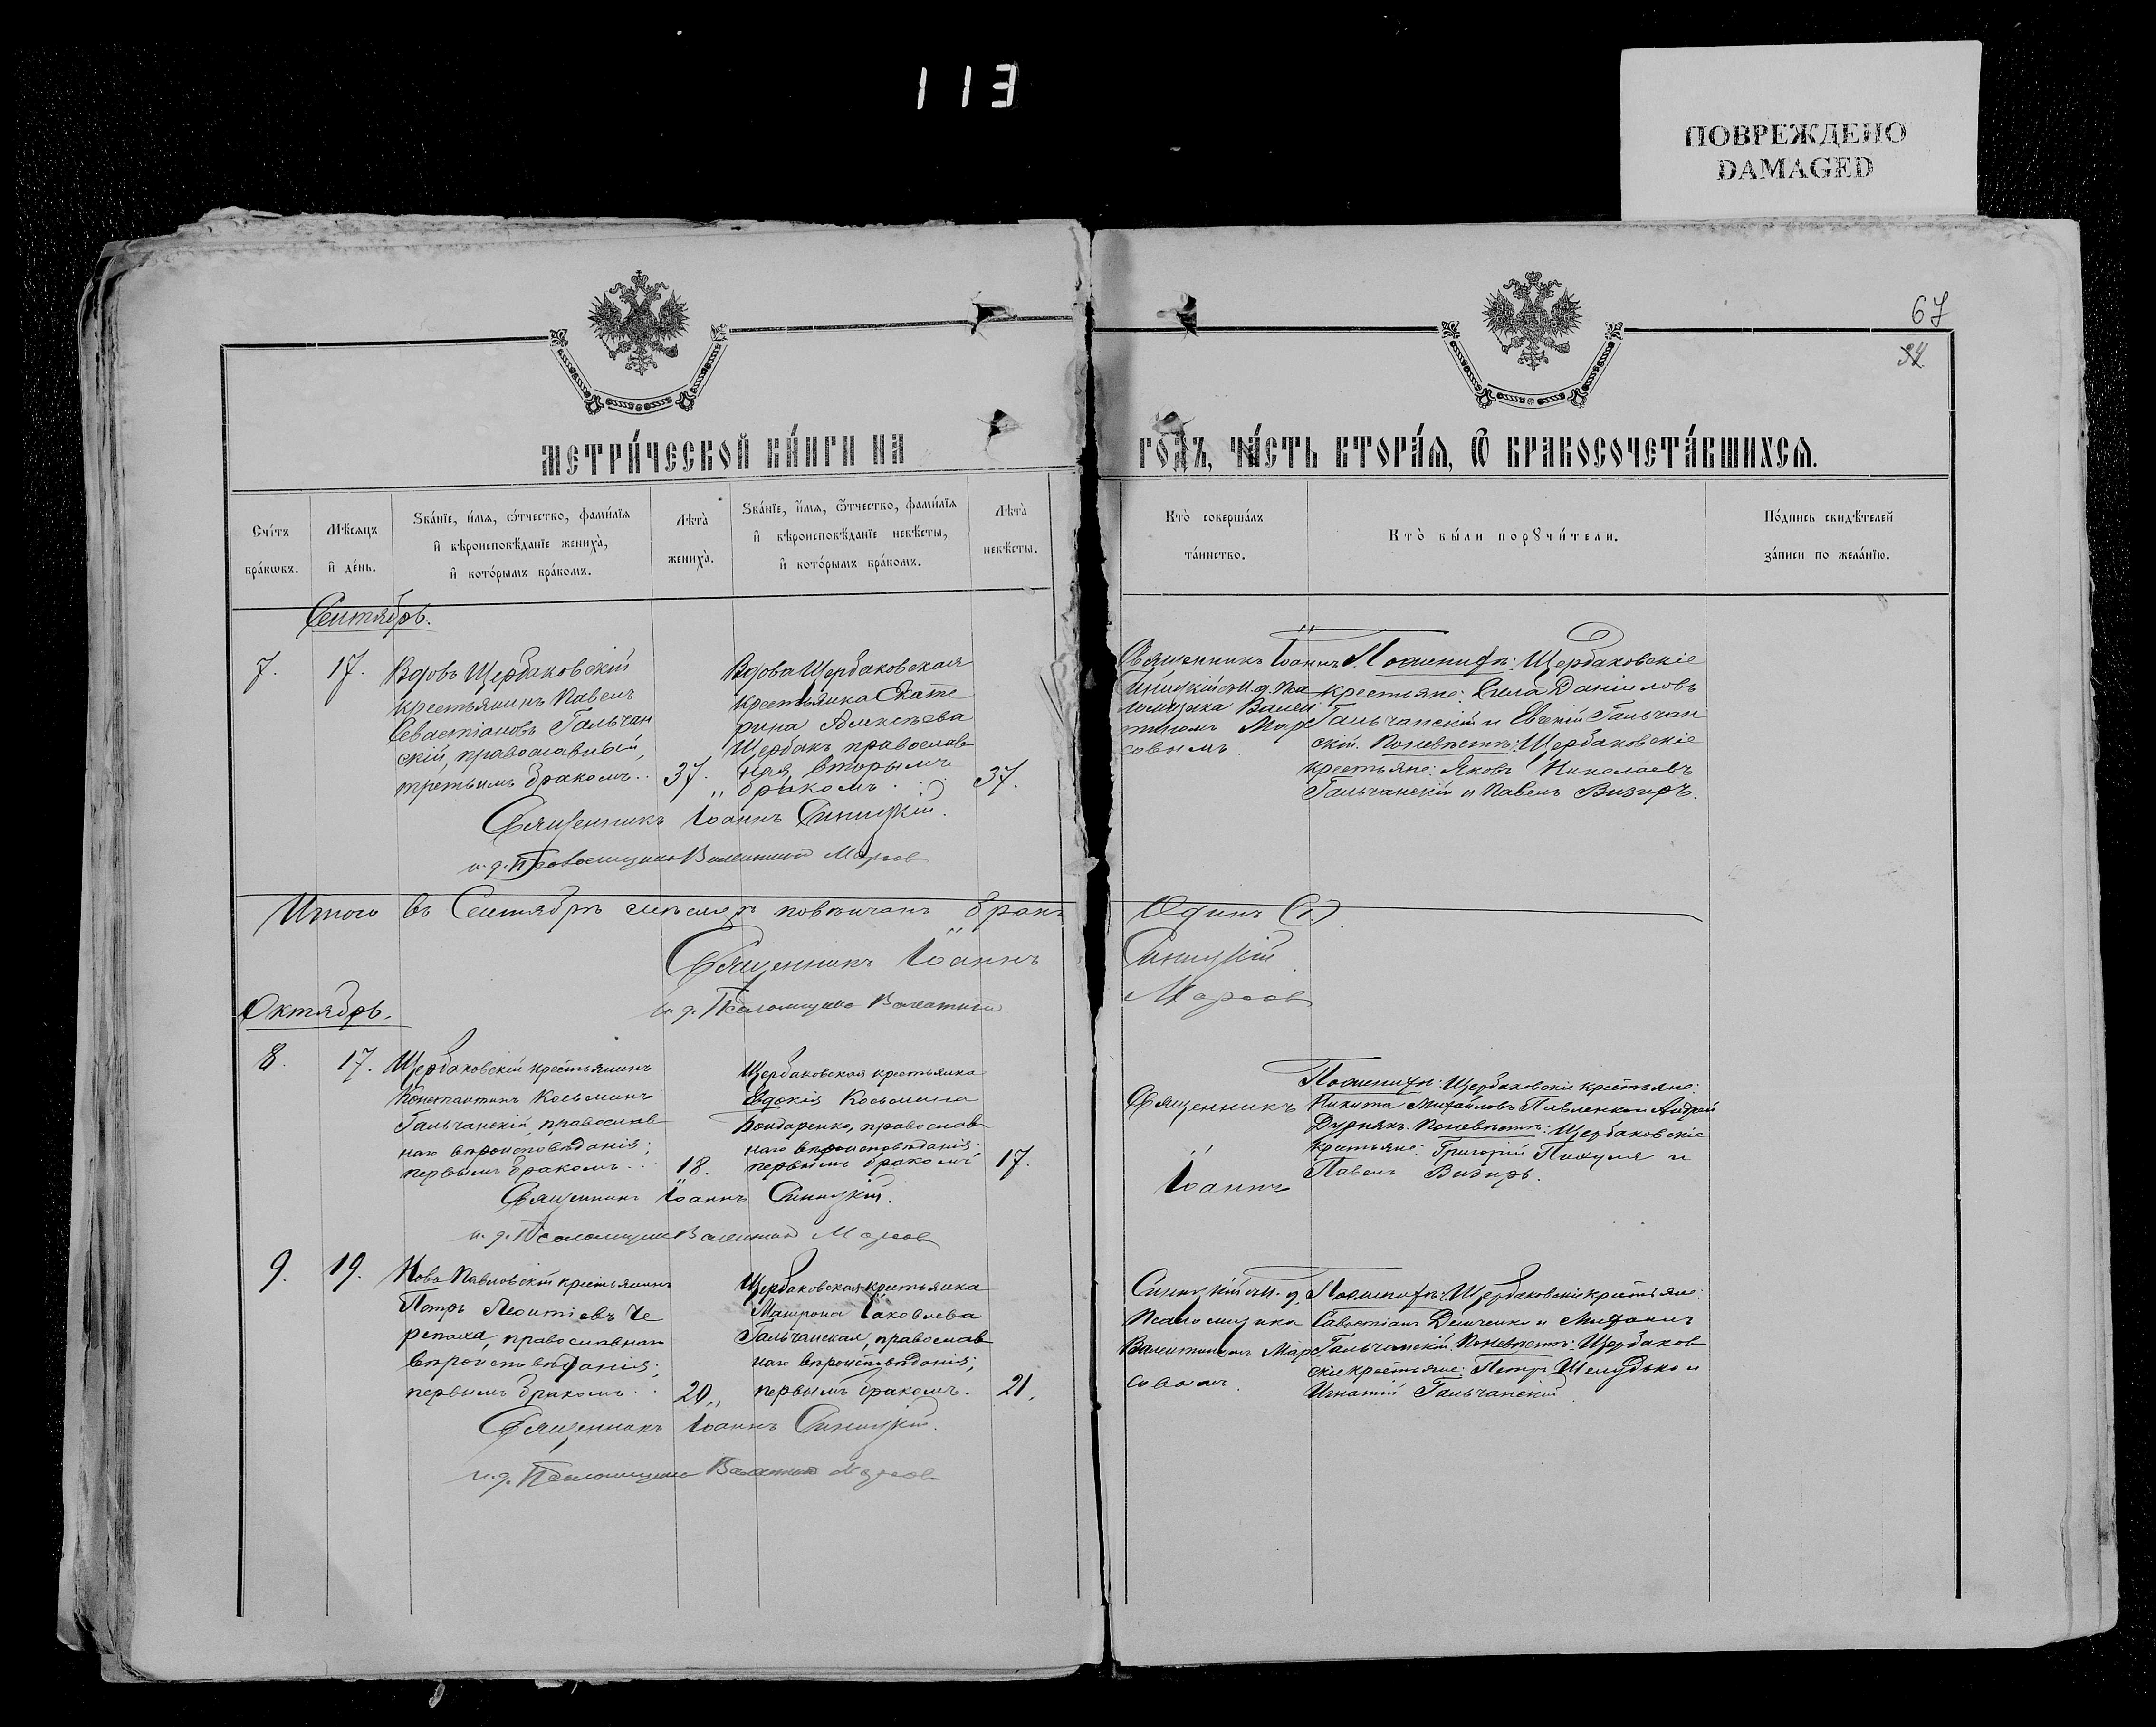 113
ПОВРЕЖДЕНО
DAMAGED
67
34
МЕТРИ́ЧЕСКОЙ КНИ́ГИ НА ГОДЪ, ЧА́СТЬ ВТОРА́Я, Ѿ БРАКОСОЧЕТА́ВШИХСЯ.
Сче́тъ
бра́кѡвъ.
Мѣ́сяцъ
и҆ де́нь.
Ѕва́нїе, и҆́мя, ѻ҆́тчество, фами́лїя
и҆ вѣроисповѣ́данїе жениха̀,
и҆ кото́рымъ бра́комъ.
Лѣ́та̀
жениха̀.
Ѕва́нїе, и҆́мя, ѻ҆́тчество, фами́лїя
и҆ вѣроисповѣ́данїе невѣ́сты,
и҆ кото́рымъ бра́комъ.
Лѣ́та̀
невѣ́сты.
Кто̀ соверша́лъ
та́инство.
Кто̀ бы́ли порꙋчи́тели.
По́дпись свидѣ́телей
за́писи по жела́нїю.
Сентябрь.
7.
17.
Вдовъ Щербаковскій
крестьянинъ Павелъ
Севастіановъ Гальчан
скій, православный,
третьимъ бракомъ.
37.
Вдова Щербаковская
крестьянка Екате
рина Алексѣева
Щербакъ православ
ная, вторымъ
бракомъ.
37.
Священникъ Іоаннъ
Синицкій съ и. д. пса
ломщика Вален
тиномъ Мар
совымъ.
По женихѣ: Щербаковскіе
крестьяне: Сила Даніиловъ
Гальчанскій и Евсей Гальчан
скій. По невѣстѣ: Щербаковскіе
крестьяне: Яковъ Николаевъ
Гальчанскій и Павелъ Визиръ.
Священникъ Іоаннъ Синицкій.
и. д. Псаломщика Валентинъ Марсов
Итого въ Сентябрѣ мѣсяцѣ повѣнчанъ бракъ Одинъ (1.)
Священникъ Іоаннъ Синицкій
и. д. Псаломщика Валентинъ Марсов
Октябрь.
8.
17.
Щербаковскій крестьянинъ
Константинъ Косьминъ
Гальчанскій, православ
наго вѣроисповѣданія;
первымъ бракомъ.
18.
Щербаковская крестьянка
Евдокія Косьмина
Бондаренко, православ
наго вѣроисповѣданія;
первымъ бракомъ
17.
Священникъ
Іоаннъ
По женихѣ: Щербаковскіе крестьяне:
Никита Михайловъ Павленко и Андрей
Дурнякъ. По невѣстѣ: Щербаковскіе
крестьяне: Григорій Пихуля и
Павелъ Визиръ.
Священникъ Іоаннъ Синицкій.
и. д. Псаломщика Валентинъ Марсов
9.
19.
Ново Павловскій крестьянинъ
Петръ Леонтіевъ Че
репаха, православнаго
вѣроисповѣданія;
первымъ бракомъ.
20.
Щербаковская крестьянка
Матрона Іаковлева
Гальчанская, православ
наго вѣроисповѣданія;
первымъ бракомъ.
21.
Синицкій съ и. д.
Псаломщика
Валентиномъ Мар
совымъ.
По женихѣ: Щербаковскіе крестьяне:
Савостіанъ Демченко и Михаилъ
Гальчанскій. По невѣстѣ: Щербаков
скіе крестьяне: Петръ Шелудько и
Игнатій Гальчанскій.
Священникъ Іоаннъ Синицкій.
и. д. Псаломщика Валентинъ Марсов